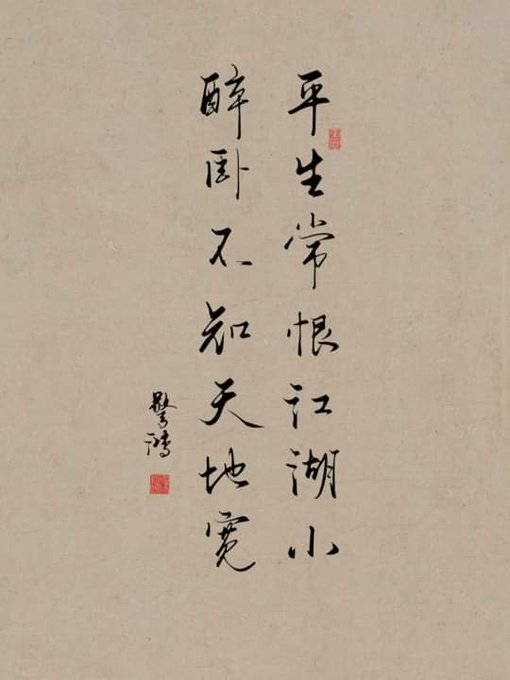 平生常恨江湖小
醉卧不知天地宽
驚鴻